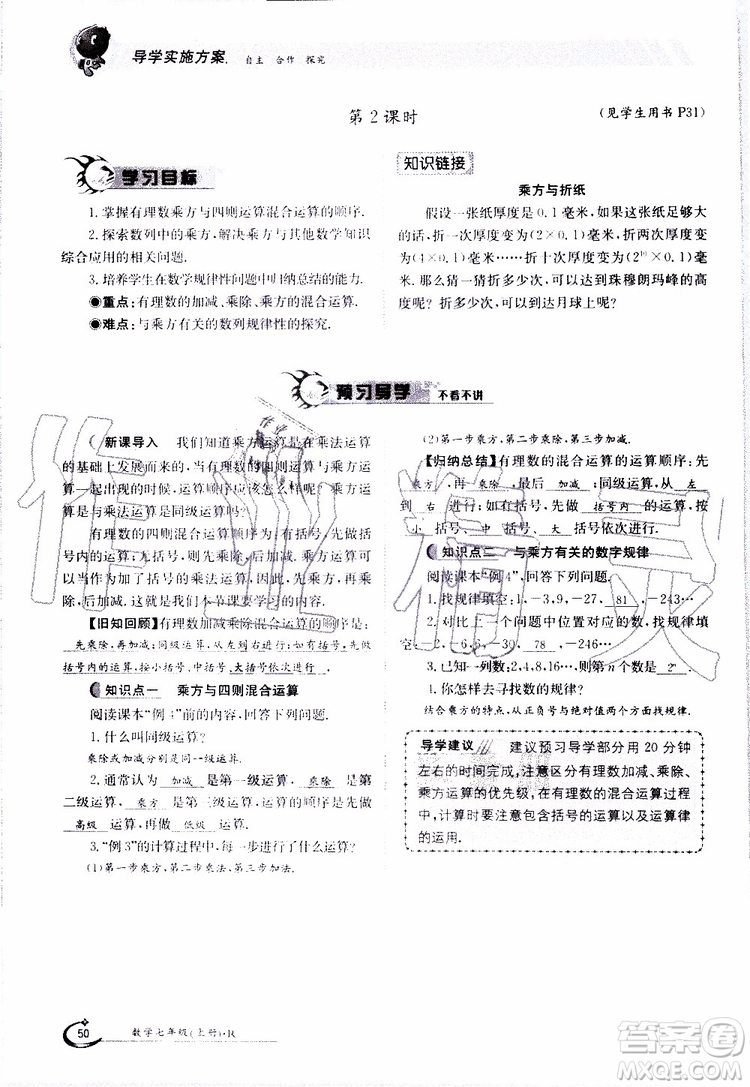 导学实施方案. 自主 合作 探究
第2课时
(见学生用书P31)
学习目标
1.掌握有理数乘方与四则运算混合运算的顺序.
2.探索数列中的乘方,解决与其他数学知识
综合应用的相关问题.
3.培养学生在数学规律性问题中归纳总结的能力.
●重点:有理数的加减、乘除、乘方的混合运算.
●难点:与乘方有关的数列规律性的探究.
知识链接
乘方与折纸
假设一张纸厚度是0.1毫米,如果这张纸足够大
的话,折一次厚度为(2×0.1)毫米,折两次厚度为
(4×0.1)毫米……折十次厚度为(2¹⁰×0.1)毫
米.那么猜一猜折多少次,可以达到珠穆朗玛峰的高
度呢?折多少次,可以达到月球上呢?
预习导学 不看不讲
新课导入 我们知道乘方运算是在乘法运算
的基础上发展而来的,有理数的乘方与乘法运算一
起出现的时候,运算顺序应该怎么样呢?有理数乘方
运算是与乘法运算同级运算吗?
有理数的四则运算的运算顺序,如果有括号,先
算括号内的;无括号,则先乘除,后加减.有理数的乘
方运算是省略了加了括号的乘法运算,因此,先算乘
方,后算乘除.这就是本节课要学习的内容!
【旧知回顾】有理数加减乘除混合运算的顺序是:
先乘除,再加减;同级运算,从左到右进行;如有括号,先做
括号内的运算,按小括号、中括号、大括号依次进行 .
知识点一 乘方与四则混合运算
阅读课本“例3”前的内容,回答下列问题.
1.什么叫同级运算?
乘除或加减的运算.
2.通常认为 加减 是第一级运算, 乘除 是第
二级运算, 乘方 是第三级运算,运算的顺序是先做
高级 运算,再做 低级 运算.
3.“例3”的计算过程中,每一步进行了什么运算?
(1)第一步乘方,第二步乘法,第三步加法.
(2)第一步乘方,第二步乘除,第三步加减.
【归纳总结】有理数的混合运算的运算顺序:先
乘方 ,再 乘除 ,最后 加减 ;同级运算,从 左
到 右 进行;如有括号,先做 括号内 的运算,按
小 括号、 中 括号、 大 括号依次进行.
知识点二 与乘方有关的数字规律
阅读课本“例4”,回答下列问题.
1.找规律填空:1,-3,9,-27, 81 ,-243…
2.对比上一个问题中位置对应的数,找规律填
空:-2,-6,6,-30, 78 ,-246…
3.已知一列数:2,4,8,16…,则第n个数是 2ⁿ .
1.你怎样去寻找数的规律?
结合乘方的特点,从正负号与绝对值两个方面找规律.
导学建议 建议预习导学部分用20分钟
左右的时间完成,注意区分有理数加减、乘除、
乘方运算的优先级,在有理数的混合运算过程
中,计算时要注意包含括号的运算以及运算律
的运用.
50 数学七年级(上册)·R
作业精灵
答案圈
MXQE.COM